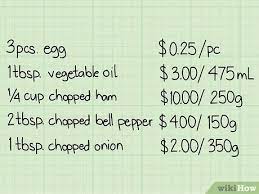 3pcs. egg $0.25/pc
1tbsp. vegetable oil $3.00/475mL
1/4 cup chopped ham $10.00/250g
2tbsp. chopped bell pepper $4.00/150g
1tbsp. chopped onion $2.00/350g
wikiHow